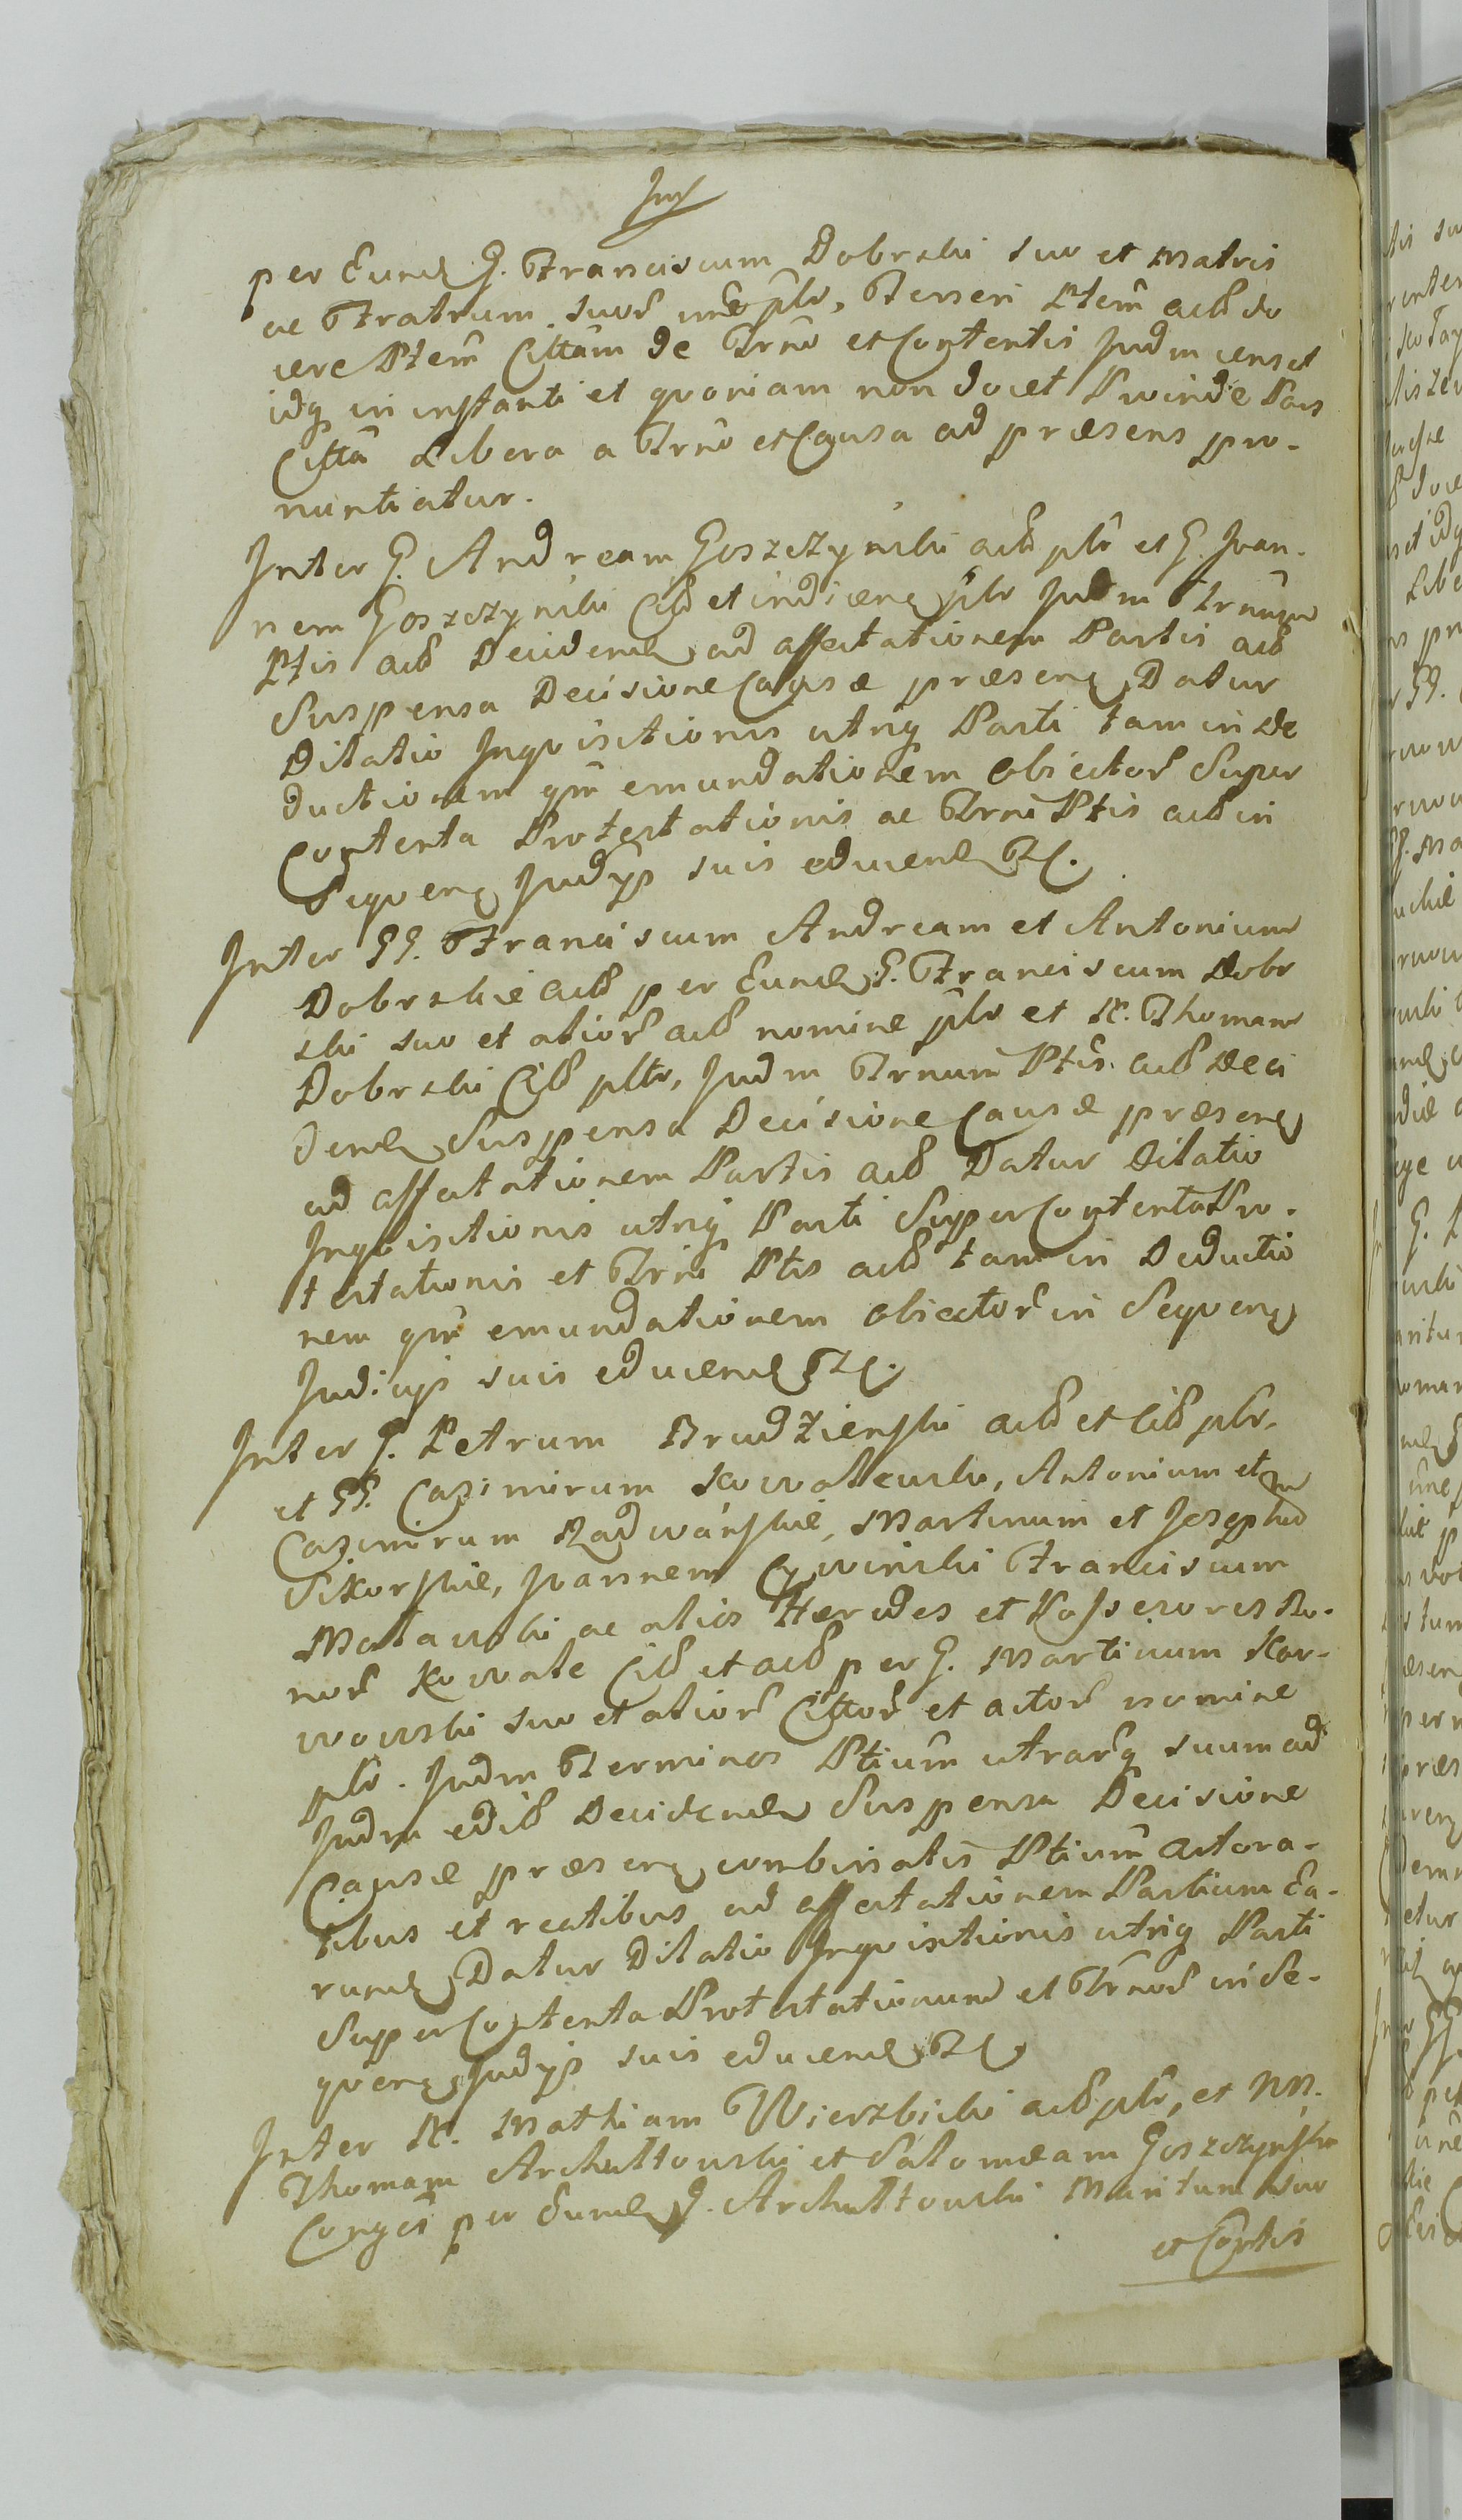 per Eund G. Franciscum Dobrski suo et Matris
ac Fratrum suor nnē plr, Terreri Ptem actt do
cere Ptem Cittam de Trno et Contentis Judm censet
idq in instanti et quoniam non docet Proinde Pars
Citta Libera a Trno et Causa ad præsens pro-
nuntiatur.
Inter G. Andream Goszczynski actt plr et G. Joan-
nem Goszczynski Citt et indicenę plr Judm Trnum
Ptis actt Decidend ad affectationem Partis actt
Suspensa Decisione Causæ præsenę Datur
Dilatio Inquisitionis utriq Parti tam in De
ductionem qm emundationem Obiector Super
Contenta Protestationis ac Trni Ptis actt in
Sequenę Judÿs suis educend Tz.
Inter GG. Franciscum Andream et Antonium
Dobrskie actt per Eund G. Franciscum Dobr
ski suo et alior actt nomine plr et N. Thomam
Dobrski Citt pltr, Judm Trnum Ptis actt Deci
dend Suspensa Decisione Causæ præsenę
ad affectationem Partis actt Datur Dilatio
Inquisitionis utriq Parti Super Contenta Pro-
testationis et Trni Ptis actt tam in Deductio
nem qm emundationem Obiector in Sequenę
Judicÿs suis educend Tz.
Inter G. Petrum Brudzienski actt et citt plr.
et GG. Casimirum Kowalewski, Antonium et
Casimirum Radwanskie, Martinum et Josephum
Sikorskie, Joannem Cywinski Franciscum
Matawski ac alios Hæredes et Possessores Bo-
nor Kowale Citt et actt per G. Martinum Kar-
wowski suo et alior Cittor et actor nomine
plr. Judm Terminos Ptium utrarq suum ad
Judm edit Decidend Suspensa Decisione
Causæ præsenę combinatis Ptium actora-
tibus et reatibus ad affectationem Partium Ea-
rund Datur Dilatio Inquisitionis utriq Parti
Super Contenta Protestationum et Trnor in Se-
quenę Judÿs suis educend Tz
Inter N. Mathiam Wierzbicki actt plr, et NN.
Thomam Archuttowski et Salomeam Goszczynska
Conges per Eund G. Archuttowski Maritum suo
et Contis